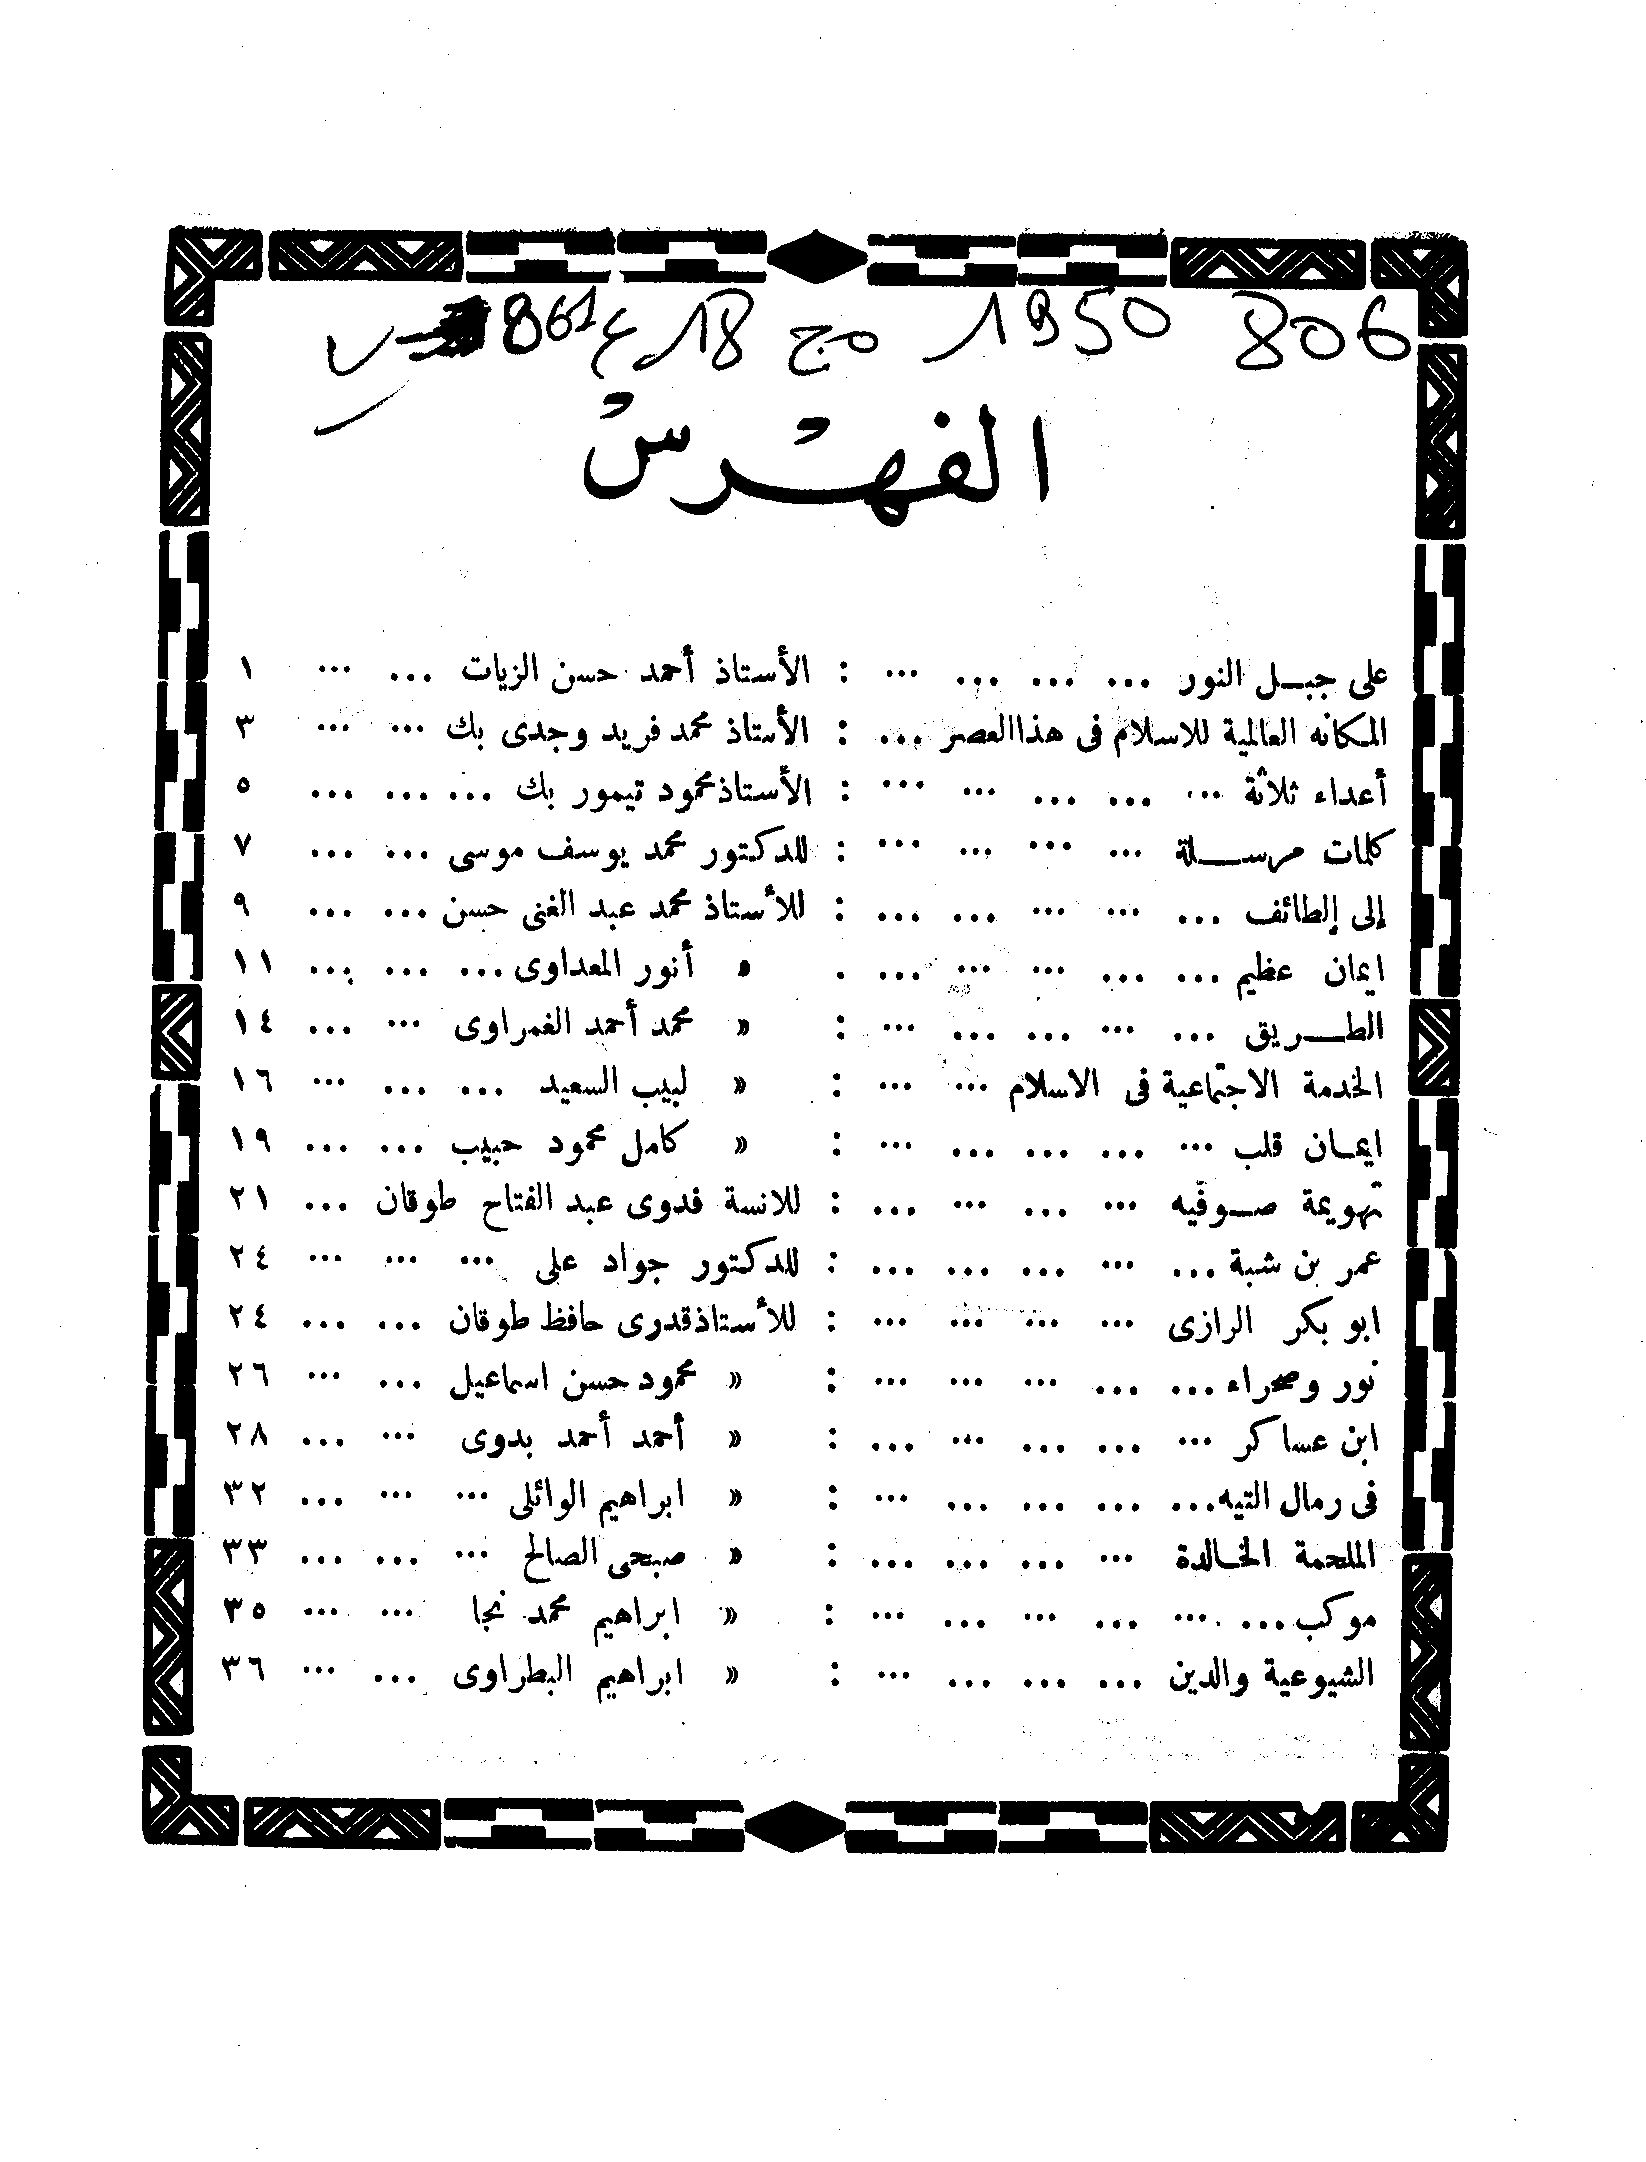 806 1950 مج 18 ع 861
الفهْرسْ
على جبـل النور ... ... ... ... : الأستاذ أحمد حسن الزيات ... ... ١
المكانه العالمية للاسلام فى هذا العصر ... : الأستاذ محمد فريد وجدى بك ... ... ٣
أعداء ثلاثة ... ... ... ... ... : الأستاذ محمود تيمور بك ... ... ... ٥
كلمات مرسـلة ... ... ... ... : للدكتور محمد يوسف موسى ... ... ٧
إلى الطائف ... ... ... ... ... : للأستاذ محمد عبد الغنى حسن ... ... ٩
ايمان عظيم ... ... ... ... ... . » أنور المعداوى ... ... ... ١١
الطـريق ... ... ... ... ... : » محمد أحمد الغمراوى ... ... ١٤
الخدمة الاجتماعية فى الاسلام ... ... : » لبيب السعيد ... ... ... ١٦
ايمـان قلب ... ... ... ... ... : » كامل محمود حبيب ... ... ١٩
تهويمة صـوفيه ... ... ... ... : للانسة فدوى عبد الفتاح طوقان ... ٢١
عمر بن شبة ... ... ... ... ... : للدكتور جواد على ... ... ... ٢٤
ابو بكر الرازى ... ... ... ... : للأستاذ قدرى حافظ طوقان ... ... ٢٤
نور وصحراء ... ... ... ... ... : » محمود حسن اسماعيل ... ... ٢٦
ابن عساكر ... ... ... ... ... : » أحمد أحمد بدوى ... ... ٢٨
فى رمال التيه ... ... ... ... ... : » ابراهيم الوائلى ... ... ... ٣٢
الملحمة الخـالدة ... ... ... ... : » صبحى الصالح ... ... ... ٣٣
موكب ... ... ... ... ... ... : » ابراهيم محمد نجا ... ... ٣٥
الشيوعية والدين ... ... ... ... : » ابراهيم البطراوى ... ... ٣٦